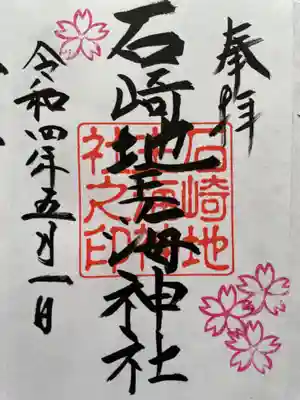 奉拝
石崎地主海神社
令和四年五月一日
石崎地
主海神
社之印